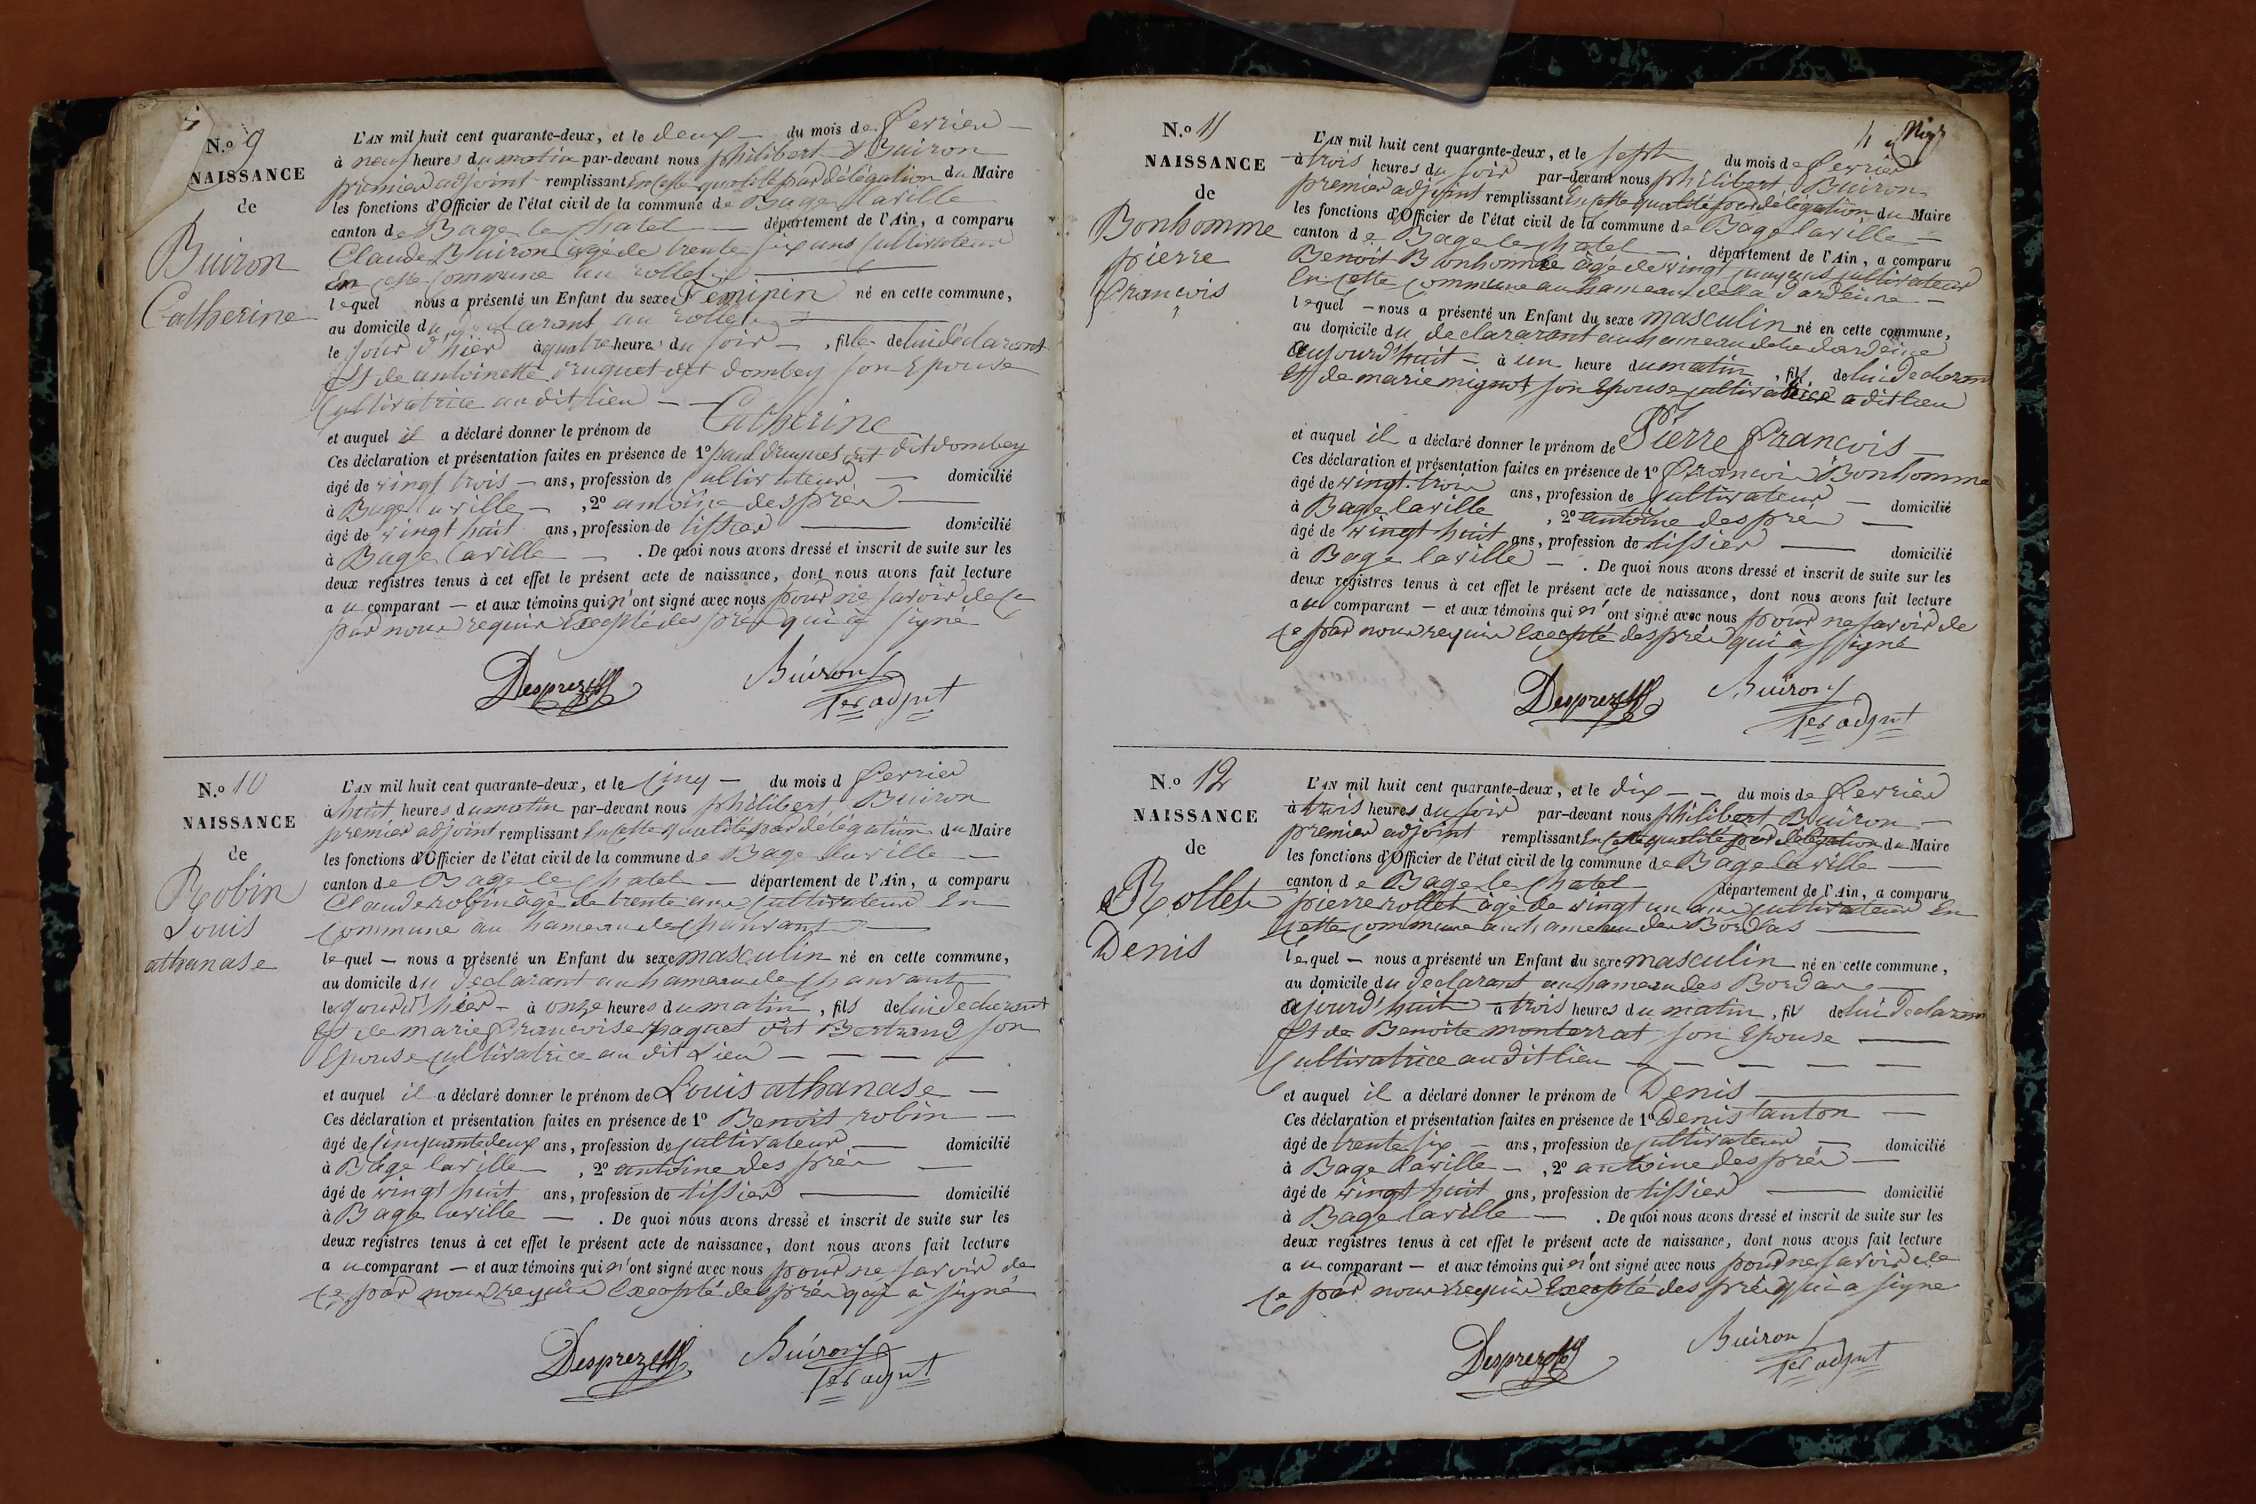 N.º 9
NAISSANCE
de
Buiron
Catherine
L'AN mil huit cent quarante-deux, et le deux — du mois de fevrier —
à neuf heures du matin par-devant nous philibert Buiron
premier adjoint remplissant En cette qualité par délégation du Maire
les fonctions d'Officier de l'état civil de la commune de Bage laville
canton de Bage le chatel — département de l'Ain, a comparu
Claude Buiron agé de trente six ans cultivateur
En cette commune au rollet —
lequel nous a présenté un Enfant du sexe Feminin né en cette commune,
au domicile du declarant au rollet —
le jour d'hier à quatre heures du soir — , fille de lui déclarant
Et de antoinette druguet dit dombey son Epouse
Cultivatrice au dit lieu — Catherine
et auquel il a déclaré donner le prénom de
Ces déclaration et présentation faites en présence de 1º paul druguet dit dombey
âgé de vingt trois — ans, profession de cultivateur — domicilié
à Bage laville — , 2º antoine despré —
âgé de vingt huit ans, profession de tissier — domicilié
à Bage laville — . De quoi nous avons dressé et inscrit de suite sur les
deux registres tenus à cet effet le présent acte de naissance, dont nous avons fait lecture
au comparant — et aux témoins qui n'ont signé avec nous pour ne savoir de ce
par nous requis Excepté despré qui à signé
Desprez Buiron
1er adjnt
N.º 10
NAISSANCE
de
Robin
Louis
athanase
L'AN mil huit cent quarante-deux, et le cinq — du mois d fevrier
à huit heures du matin par-devant nous philibert Buiron
premier adjoint remplissant En cette qualité par délégation du Maire
les fonctions d'Officier de l'état civil de la commune de Bage laville —
canton de Bage le chatel — département de l'Ain, a comparu
Claude robin âgé de trente ans cultivateur En
commune au hameau de chanvant —
lequel — nous a présenté un Enfant du sexe masculin né en cette commune,
au domicile du declarant au hameau de chanvant
le jourd'hier — à onze heures du matin , fils de lui declarant
Et de marie francoise paquet dit Bertrand son
Epouse cultivatrice au dit Lieu — — — —
et auquel il a déclaré donner le prénom de Louis athanase —
Ces déclaration et présentation faites en présence de 1º Benoit robin —
âgé de cinquante deux ans, profession de cultivateur — domicilié
à Bage laville , 2º antoine des pré —
âgé de vingt huit ans, profession de tissier — domicilié
à Bage laville — . De quoi nous avons dressé et inscrit de suite sur les
deux registres tenus à cet effet le présent acte de naissance, dont nous avons fait lecture
au comparant — et aux témoins qui n'ont signé avec nous pour ne savoir de
ce par nous requis Excepté despré qui à signé
Desprez Buiron
1er adjnt
N.º 11
NAISSANCE
de
Bonhomme
pierre
francois
L'AN mil huit cent quarante-deux, et le sept du mois de fevrier
à trois heures du soir par-devant nous philibert Buiron
premier adjoint remplissant En cette qualité par délégation du Maire
les fonctions d'Officier de l'état civil de la commune de Bage laville —
canton de Bage le chatel — département de l'Ain, a comparu
Benoit Bonhomme âgé de vingt cinq ans cultivateur
En cette commune au hameau de la dardeine —
lequel — nous a présenté un Enfant du sexe masculin né en cette commune,
au domicile du declararant au hameau de la dardeine
aujourd'huit — à un heure du matin , fils de lui declarant
Et de marie mignot son Epouse cultivatrice a dit lieu
et auquel il a déclaré donner le prénom de Pierre francois —
Ces déclaration et présentation faites en présence de 1º francois Bonhomme
âgé de vingt-trois ans, profession de cultivateur — domicilié
à Bage laville , 2º antoine des pré —
âgé de vingt huit ans, profession de tissier — domicilié
à Bage laville — . De quoi nous avons dressé et inscrit de suite sur les
deux registres tenus à cet effet le présent acte de naissance, dont nous avons fait lecture
au comparant — et aux témoins qui n'ont signé avec nous pour ne savoir de
ce par nous requis Excepté despré qui à signé
Desprez Buiron
1er adjnt
N.º 12
NAISSANCE
de
Rollet
Denis
L'AN mil huit cent quarante-deux, et le dix — — du mois de fevrier
à trois heures du soir par-devant nous philibert Buiron —
premier adjoint remplissant En cette qualité par délégation du Maire
les fonctions d'Officier de l'état civil de la commune de Bage la ville —
canton de Bage le chatel département de l'Ain, a comparu
pierre rollet âgé de vingt un ans cultivateur En
cette commune au hameau des Bordas —
lequel — nous a présenté un Enfant du sexe masculin né en cette commune,
au domicile du declarant au hameau des Bordas —
ajourd'huit à trois heures du matin , fils de lui declarant
Et de Benoite monterrat son Epouse —
Cultivatrice au dit lieu — — — — —
et auquel il a déclaré donner le prénom de Denis —
Ces déclaration et présentation faites en présence de 1º Denis tanton —
âgé de trente six — ans, profession de cultivateur — domicilié
à Bage laville — , 2º antoine des pré —
âgé de vingt huit ans, profession de tissier — domicilié
à Bage laville — . De quoi nous avons dressé et inscrit de suite sur les
deux registres tenus à cet effet le présent acte de naissance, dont nous avons fait lecture
au comparant — et aux témoins qui n'ont signé avec nous pour ne savoir de
ce par nous requis Excepté despré qui a signe
Desprez Buiron
1er adjnt